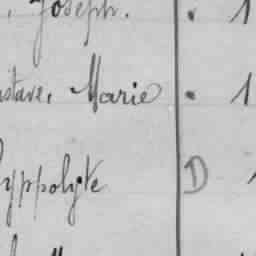 , Joseph. . 1
ustave, Marie . 1
yppolyte D